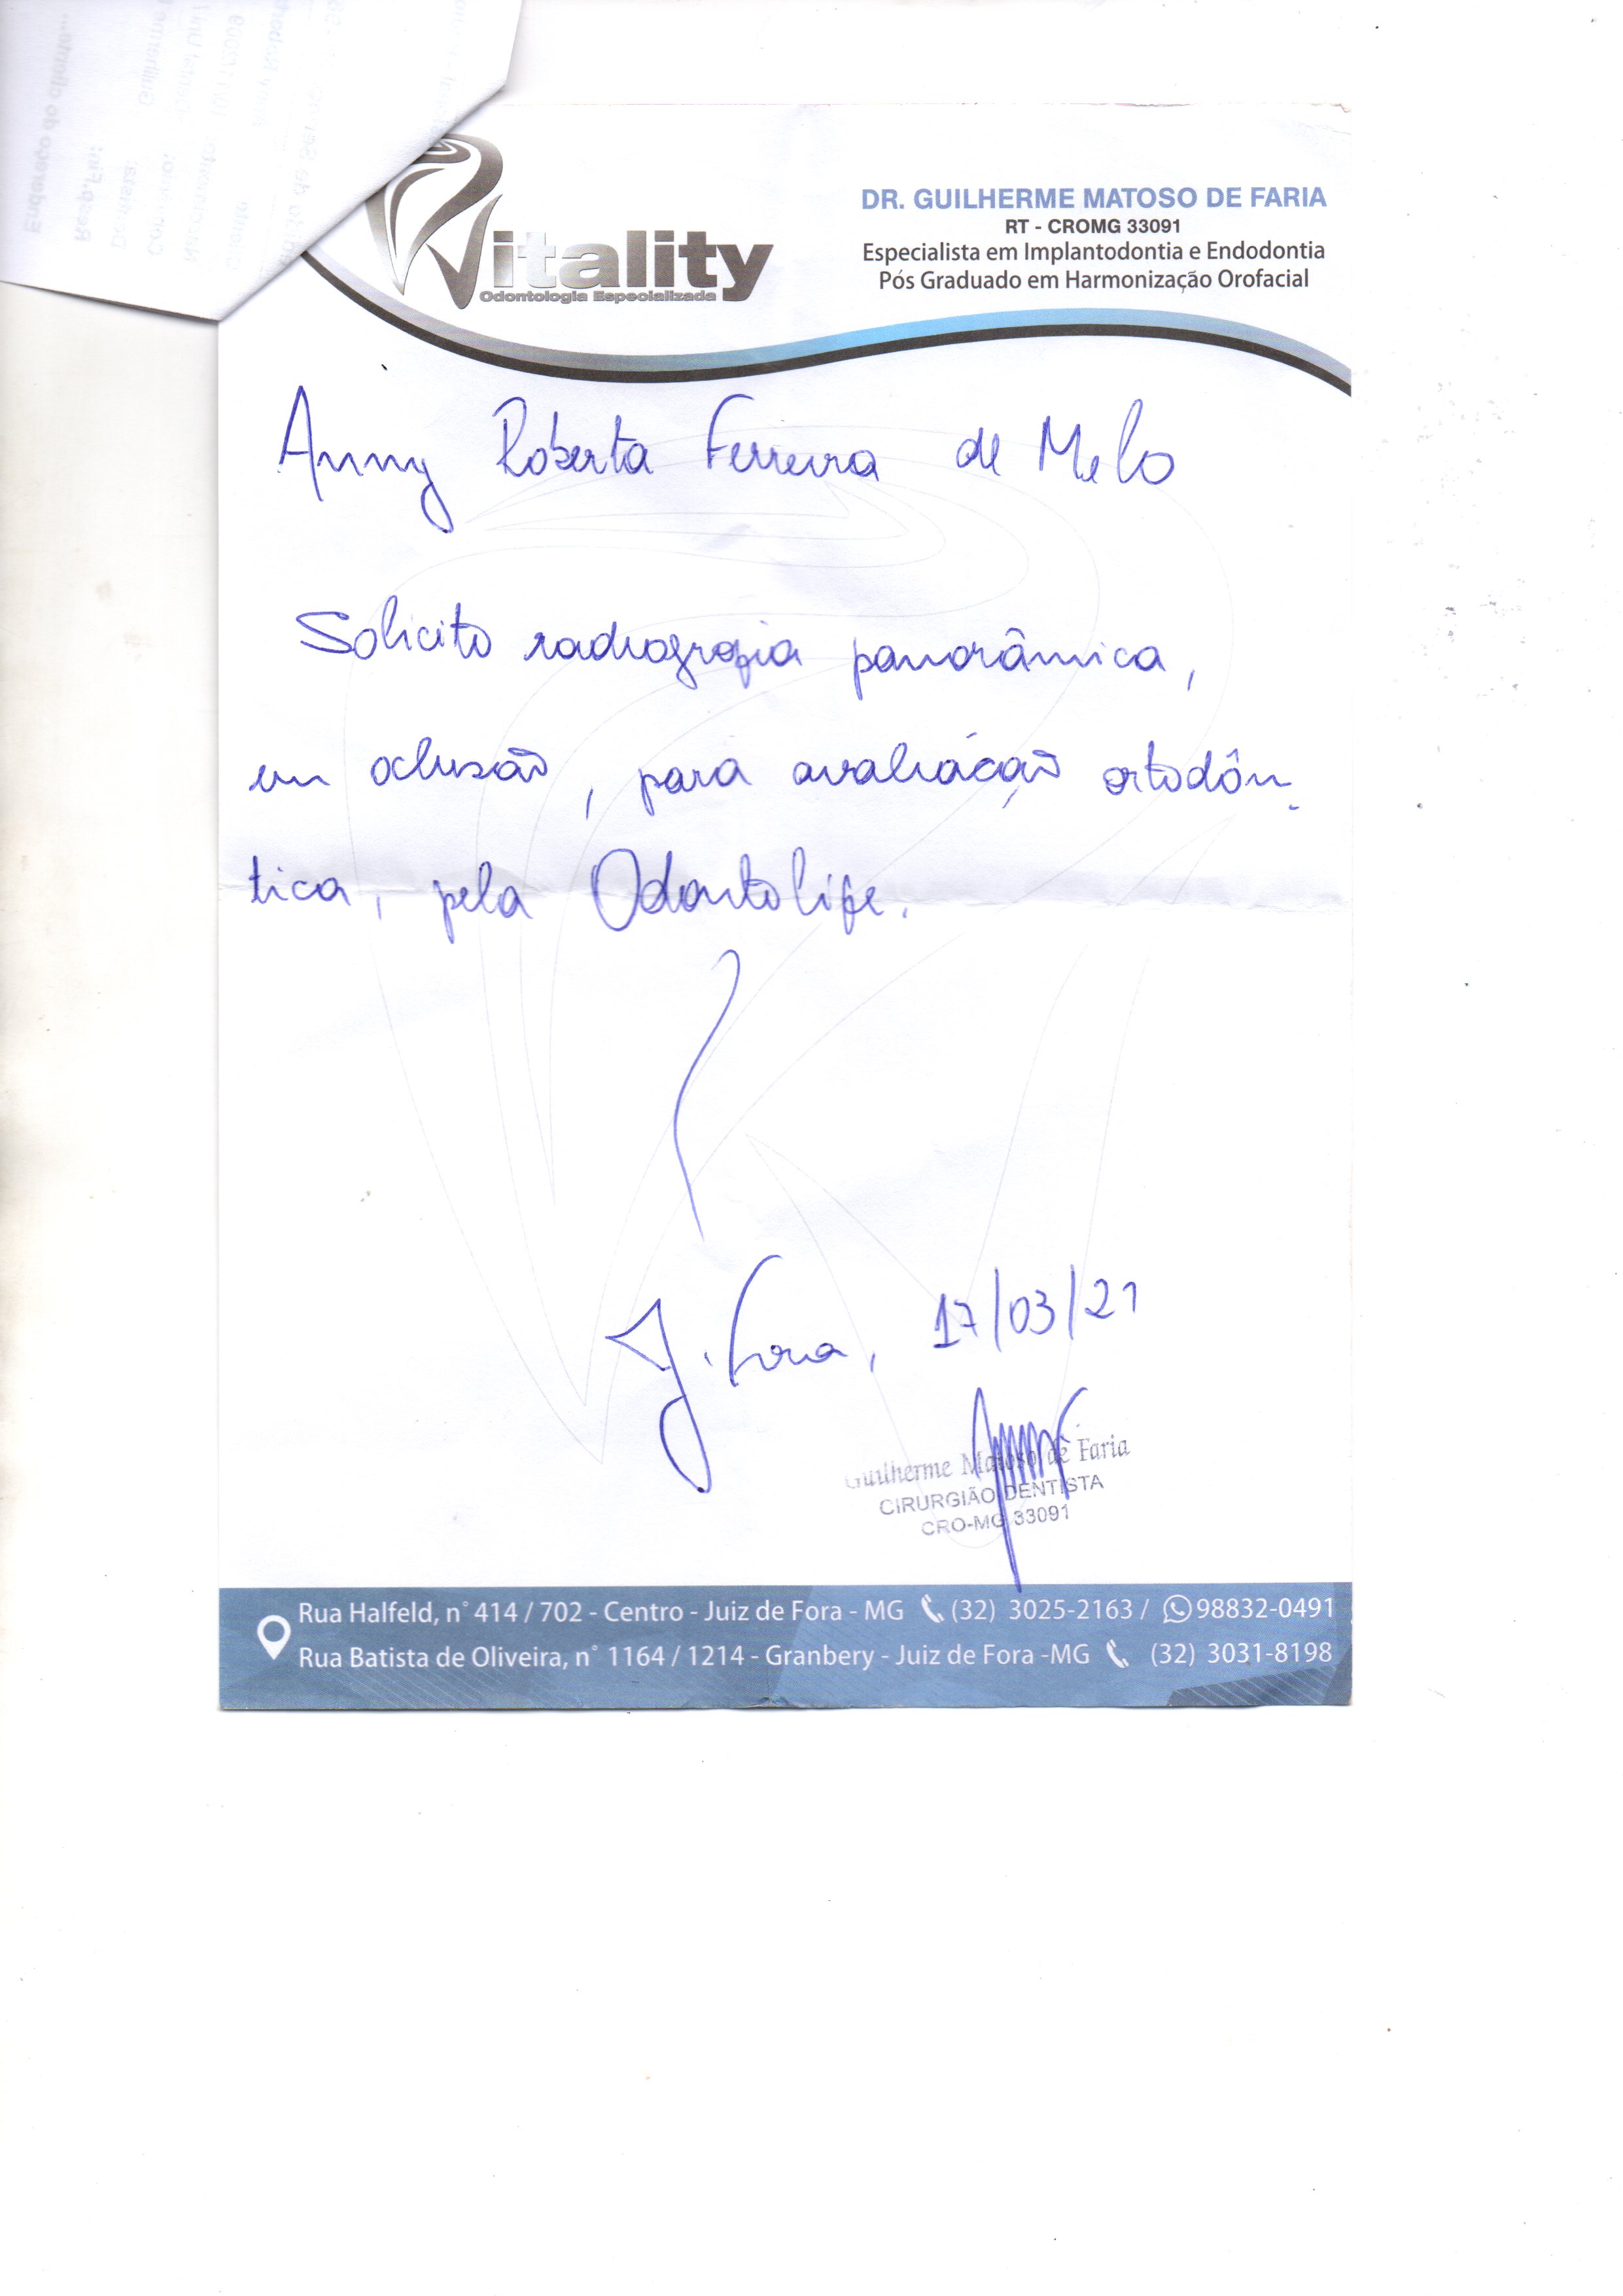 Vitality
Odontologia Especializada
DR. GUILHERME MATOSO DE FARIA
RT - CROMG 33091
Especialista em Implantodontia e Endodontia
Pós Graduado em Harmonização Orofacial
Anny Roberta Ferreira de Melo
Solicito radiografia panorâmica,
em oclusão, para avaliação ortodôn-
tica, pela Odontolife.
J. Fora, 17/03/21
Guilherme Matoso de Faria
CIRURGIÃO DENTISTA
CRO-MG 33091
Rua Halfeld, n° 414 / 702 - Centro - Juiz de Fora - MG (32) 3025-2163 / 98832-0491
Rua Batista de Oliveira, n° 1164 / 1214 - Granbery - Juiz de Fora -MG (32) 3031-8198
Endereço do cliente...
Resp.Fin: